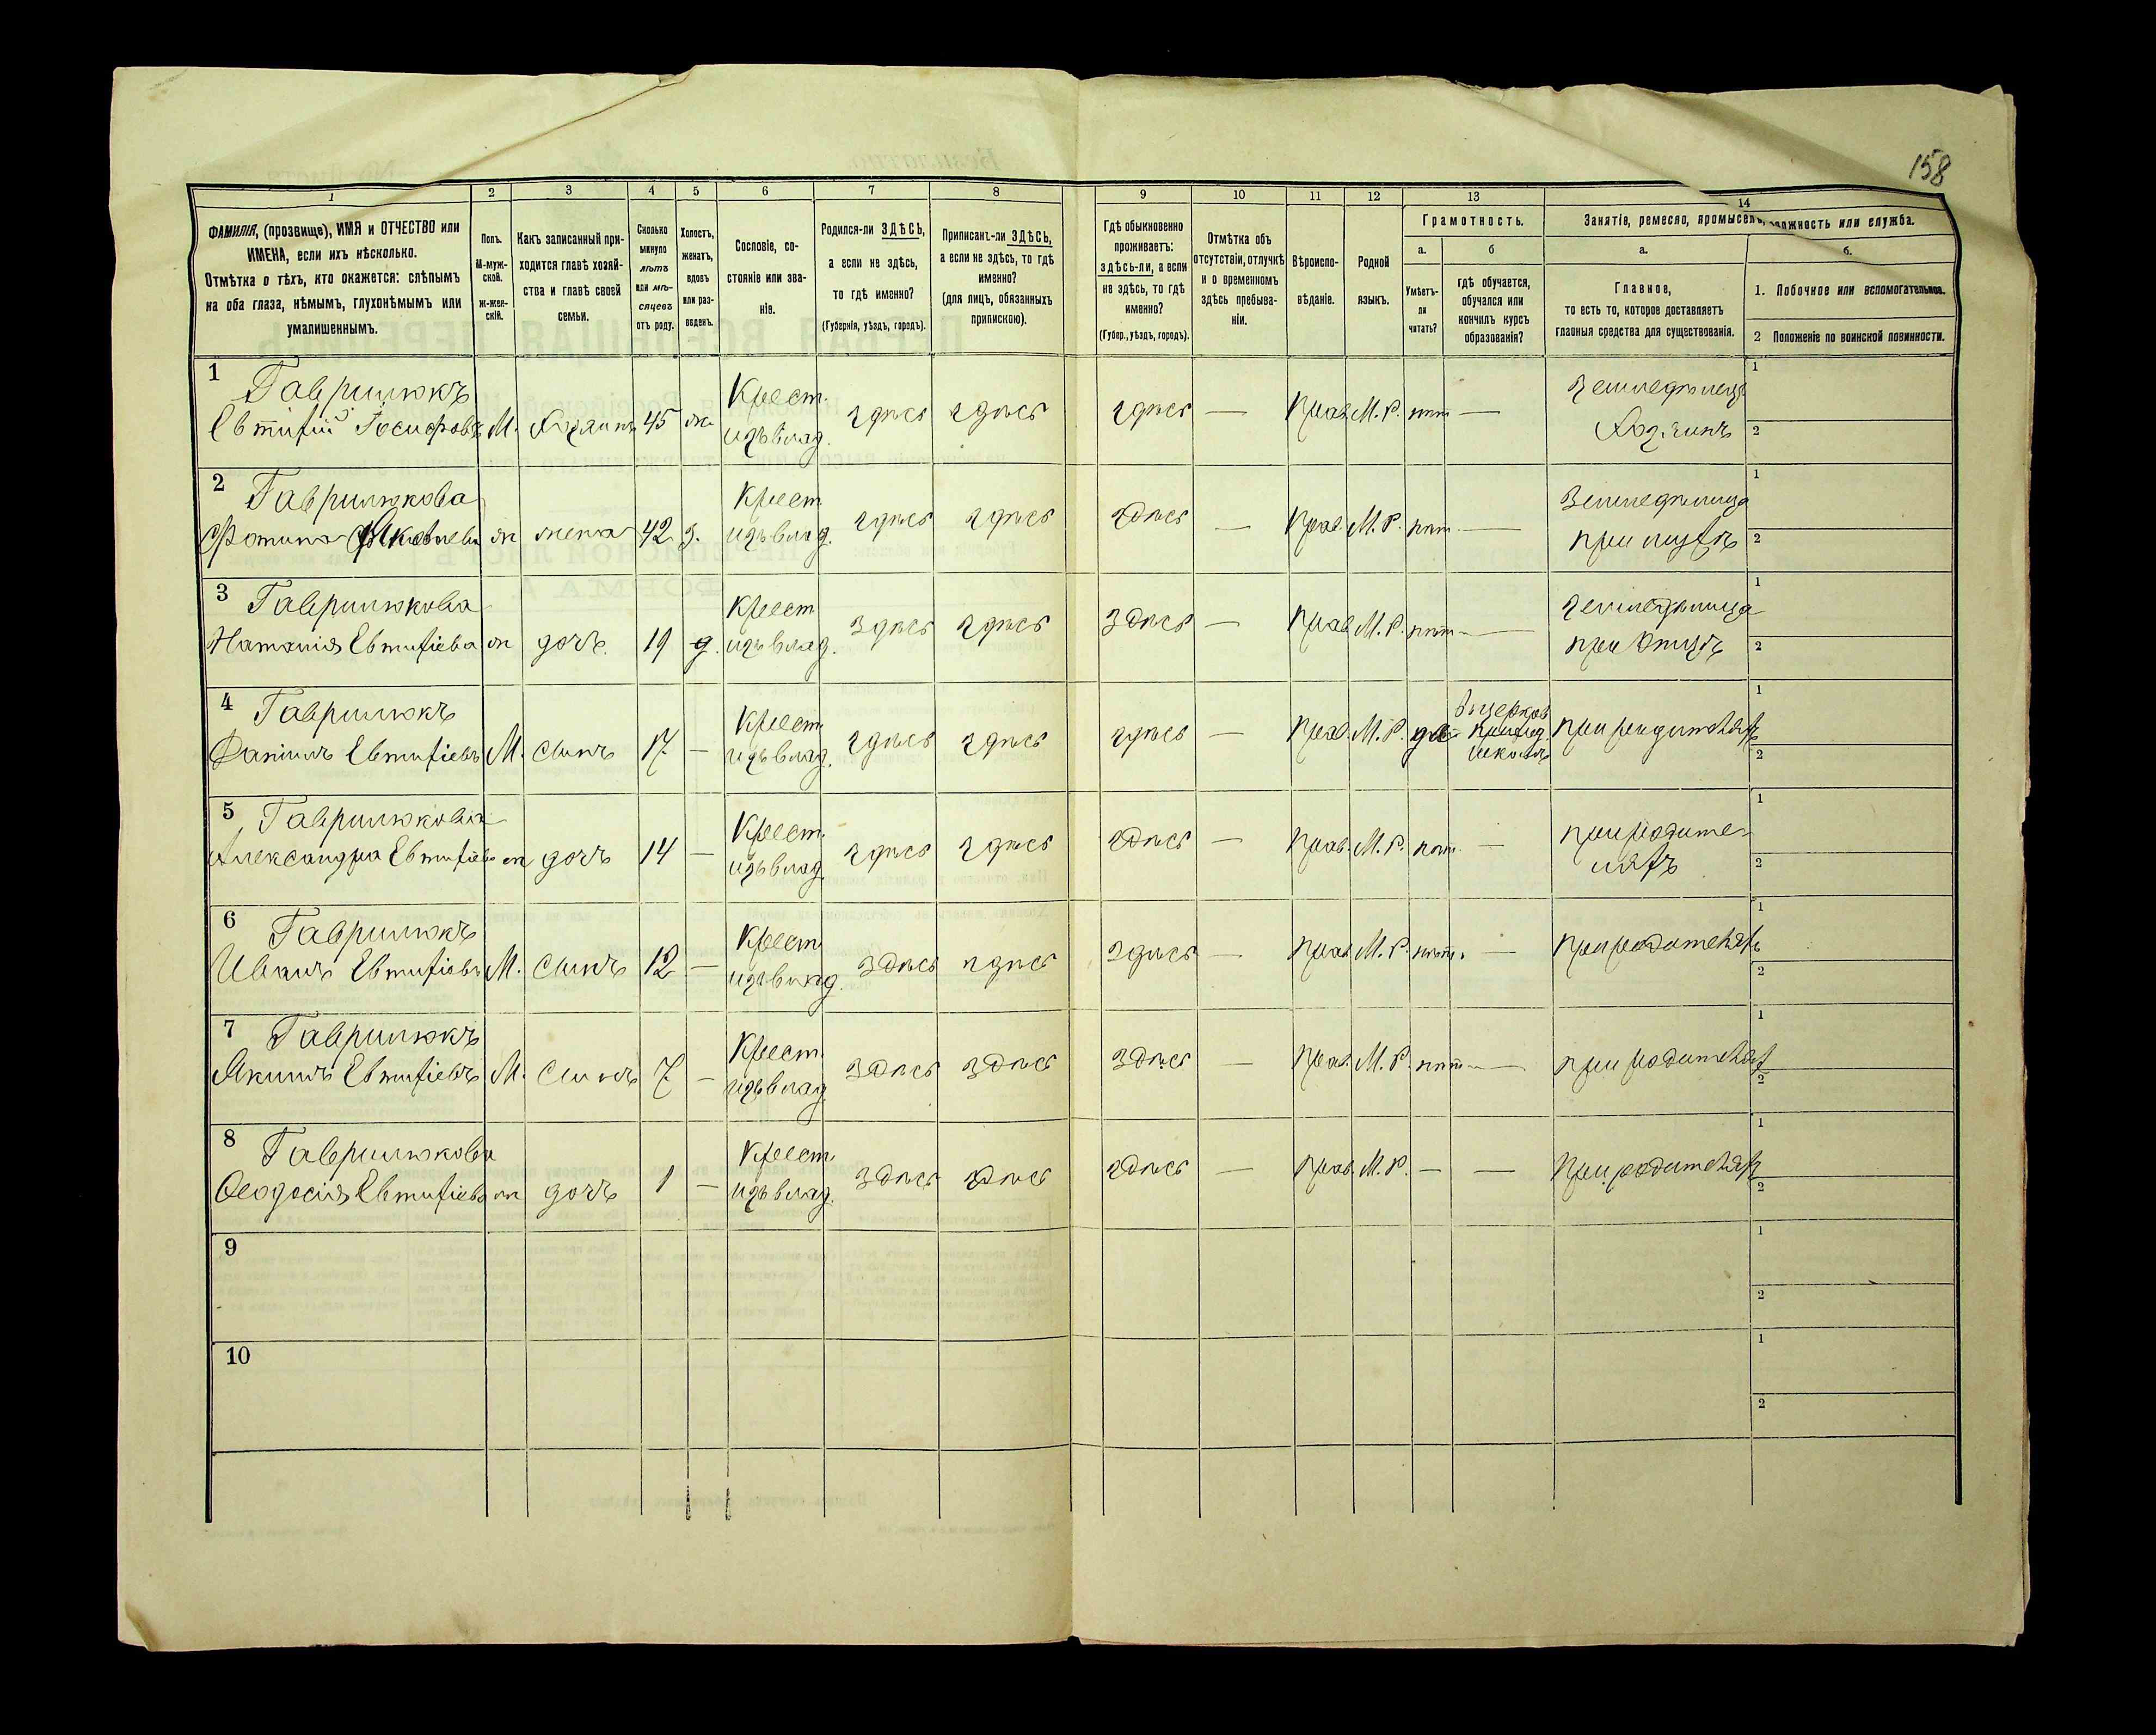 158
1 2 3 4 5 6 7 8 9 10 11 12 13 14
ФАМИЛІЯ, (прозвище), ИМЯ и ОТЧЕСТВО или
ИМЕНА, если ихъ нѣсколько.
Отмѣтка о тѣхъ, кто окажется: слѣпымъ
на оба глаза, нѣмымъ, глухонѣмымъ или
умалишеннымъ.
Полъ.
М-муж-
ской.
ж-жен-
скій.
Какъ записанный при-
ходится главѣ хозяй-
ства и главѣ своей
семьи.
Сколько
минуло
лѣтъ
или мѣ-
сяцевъ
отъ роду.
Холостъ,
женатъ,
вдовъ
или раз-
веденъ.
Сословіе, со-
стояніе или зва-
ніе.
Родился-ли ЗДѢСЬ,
а если не здѣсь,
то гдѣ именно?
(Губернія, уѣздъ, городъ).
Приписанъ-ли ЗДѢСЬ,
а если не здѣсь, то гдѣ
именно?
(для лицъ, обязанныхъ
припискою).
Гдѣ обыкновенно
проживаетъ:
здѣсь-ли, а если
не здѣсь, то гдѣ
именно?
(Губер., уѣздъ, городъ).
Отмѣтка объ
отсутствіи, отлучкѣ
и о временномъ
здѣсь пребыва-
ніи.
Вѣроиспо-
вѣданіе.
Родной
языкъ.
Грамотность.
а. б
Умѣетъ-
ли
читать?
гдѣ обучается,
обучался или
кончилъ курсъ
образованія?
Занятіе, ремесло, промыселъ, должность или служба.
а. б.
Главное,
то есть то, которое доставляетъ
главныя средства для существованія.
1. Побочное или вспомогательное.
2 Положеніе по воинской повинности.
1 Гаврилюкъ
Евтифій Іосифовъ М. Хозяинъ 45 ж. Крест. изъ влад. здѣсь здѣсь здѣсь — Прав. М. Р. нѣт — Земледѣлецъ Хозяинъ 1 2
2 Гаврилюкова
Фотина Яковлева ж жена 42 з. Крест изъ влад. здѣсь здѣсь здѣсь — Прав. М. Р. нѣт — Земледѣлица при мужѣ 1 2
3 Гаврилюкова
Наталія Евтифіева ж дочь 19 д. Крест изъ влад. здѣсь здѣсь здѣсь — Прав М. Р. нѣт — Земледѣлица при Отцѣ 1 2
4 Гаврилюкъ
Даніилъ Евтифіевъ М. сынъ 17 — Крест изъ влад. здѣсь здѣсь здѣсь — Прав. М. Р. да В церков приход. школѣ При родителяхъ 1 2
5 Гаврилюкова
Александра Евтифіева ж дочь 14 — Крест. изъ влад. здѣсь здѣсь здѣсь — Прав. М. Р. нѣт. — при родите-
ляхъ 1 2
6 Гаврилюкъ
Иванъ Евтифіевъ М. сынъ 12 — Крест изъ влад. здѣсь здѣсь здѣсь — Прав. М. Р. нѣт. — При родителяхъ 1 2
7 Гаврилюкъ
Якимъ Евтифіевъ М. сынъ 7 — Крест изъ влад. здѣсь здѣсь здѣсь — Прав. М. Р. нѣт — при родителях 1 2
8 Гаврилюкова
Ѳеодосія Евтифіева ж дочь 1 — Крест изъ влад. здѣсь здѣсь здѣсь — Прав. М. Р. — — При родителях 1 2
9 1 2
10 1 2